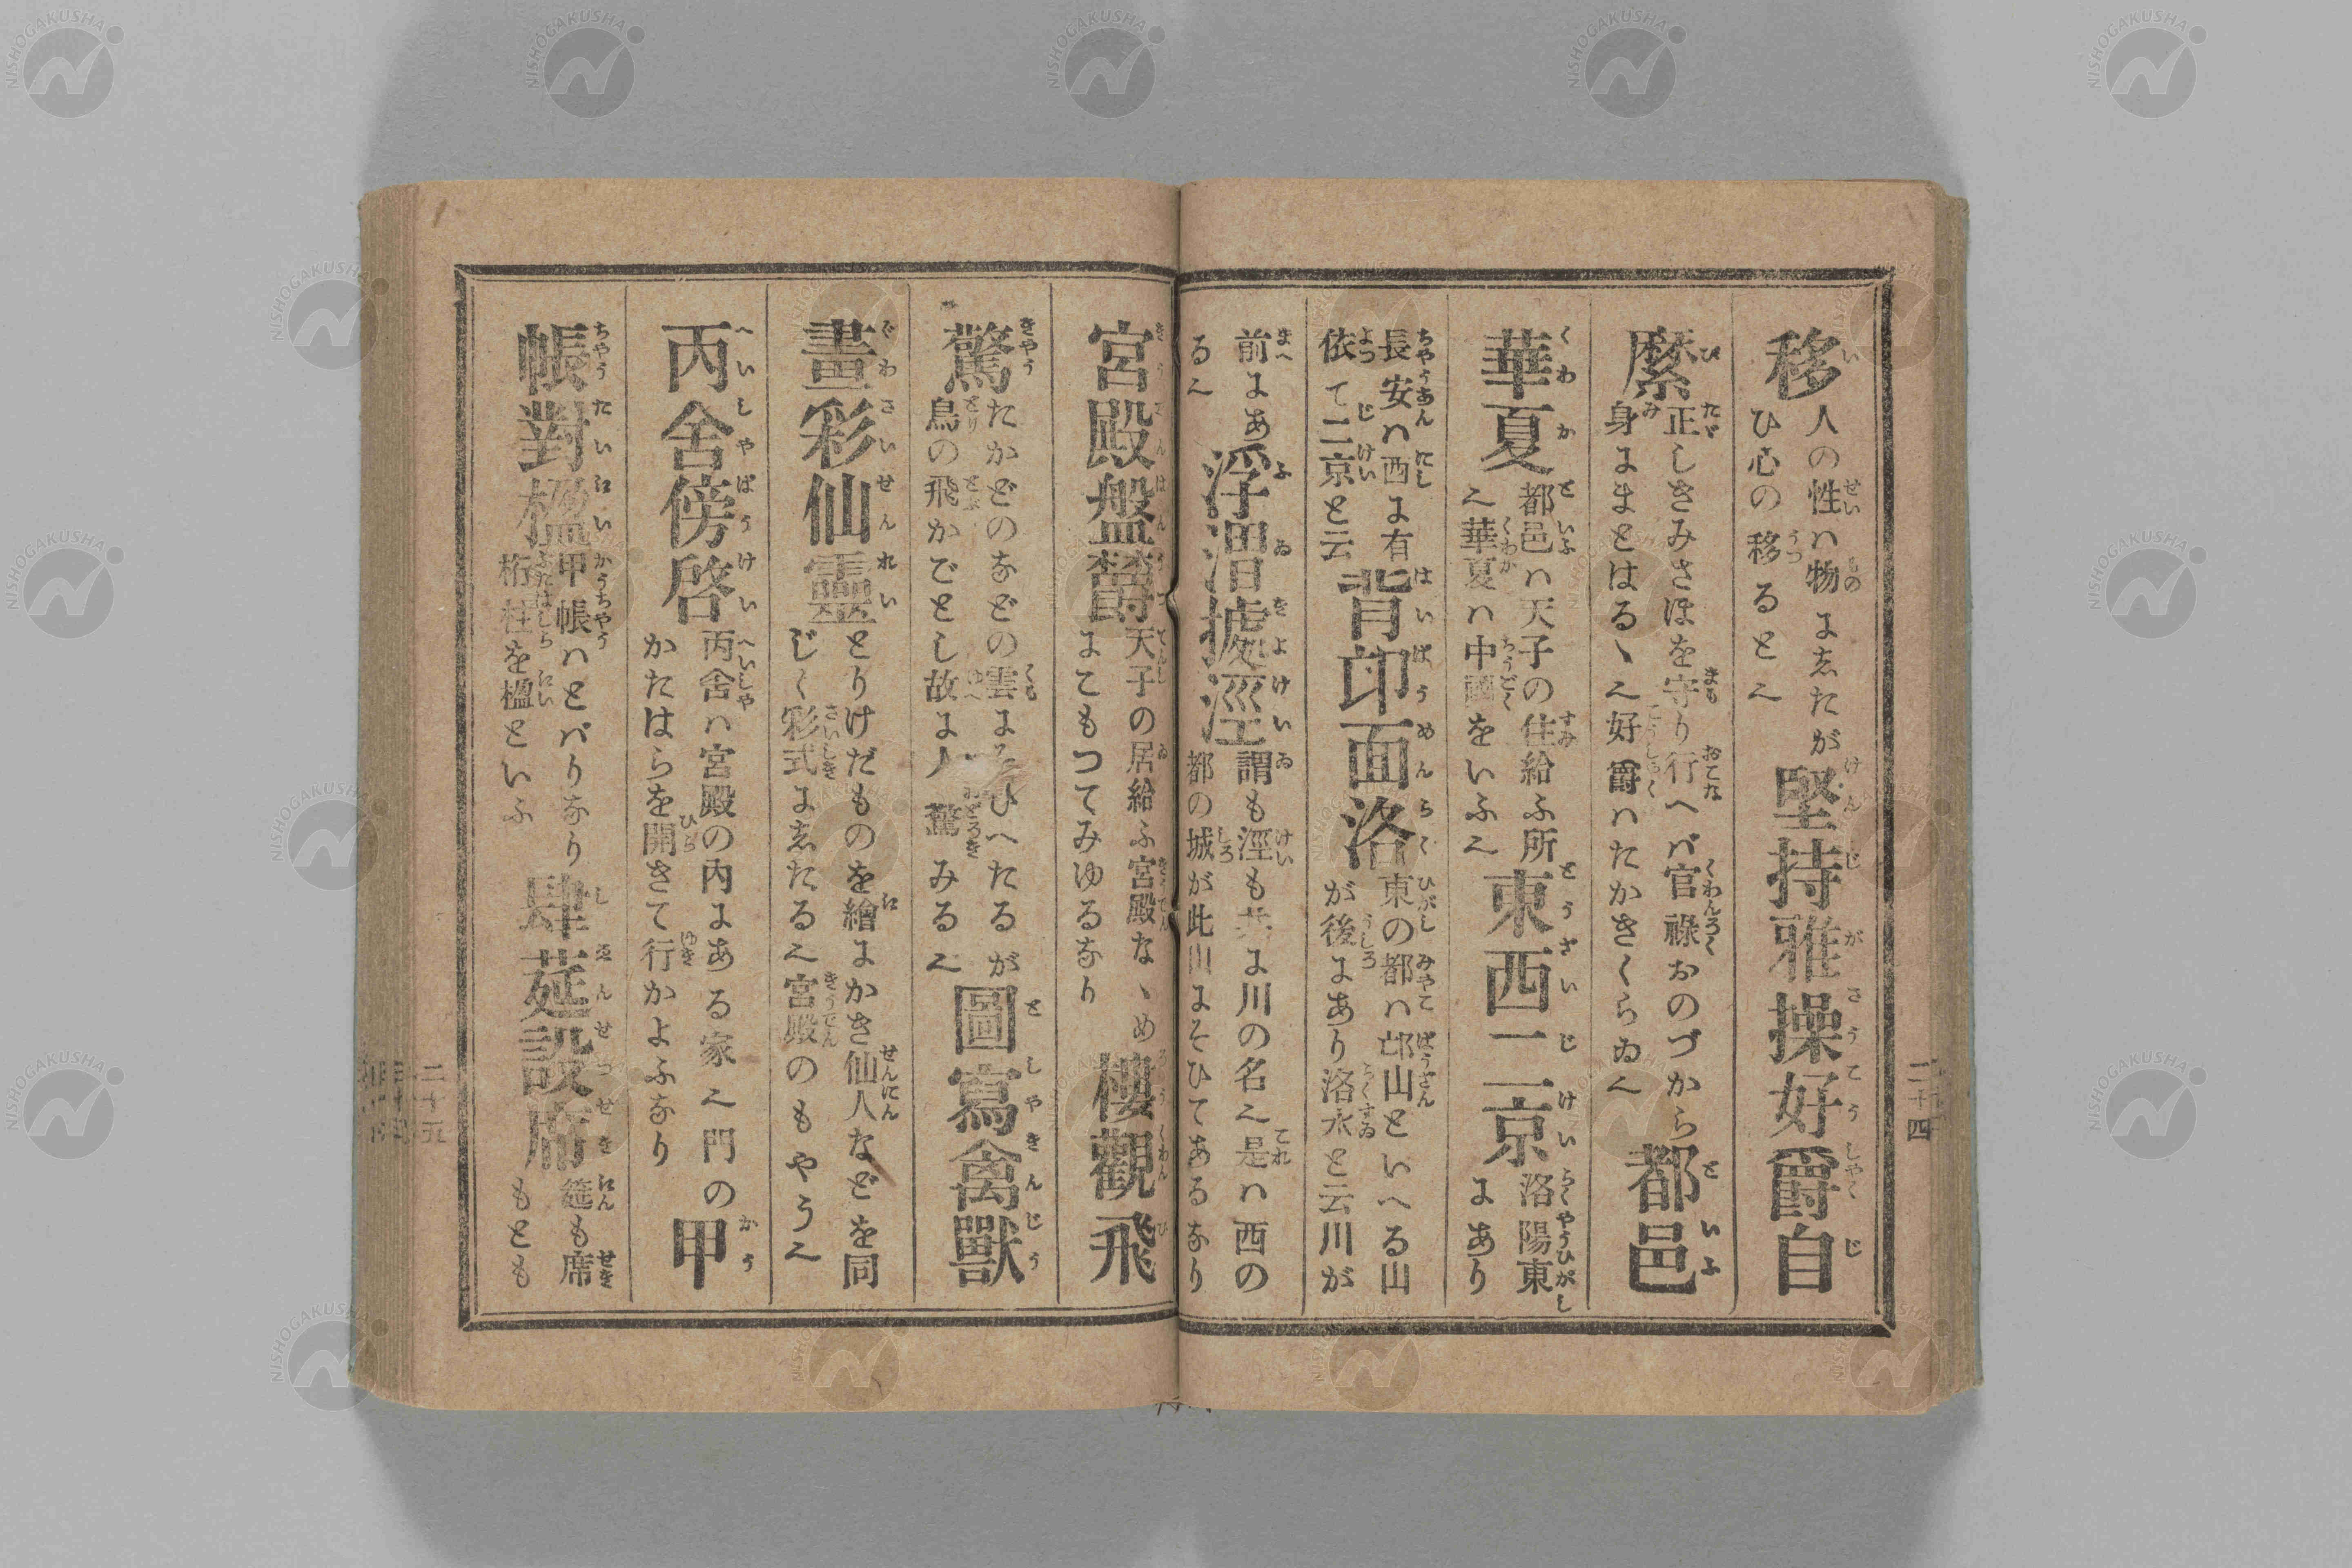 移 人の性ハ物にゑたが
ひ心の移るとへ
堅持雅操好爵自
縻 正しきみさほを守り行へバ官祿おのづから
身にまとはるヽへ好爵ハたかきくらゐへ
都邑
華夏 都邑ハ天子の住給ふ所
へ華夏ハ中國をいふへ
東西二京 洛陽東
にあり
長安ハ西に有
依て二京と云
背邙面洛 東の都ハ邙山といへる山
が後にあり洛水と云川が
前にあ
るへ
浮渭據涇 謂も涇も共に川の名へ是ハ西の
都の城が此川にそひてあるなり
二十四
宮殿盤欝 天子の居給ふ宮殿なヽめ
にこもつてみゆるなり
樓觀飛
驚 たかどのなどの雲に
鳥の飛かごとし故に人驚みるへ
圖寫禽獸
畫彩仙靈 とりけだものを繪にかき仙人などを同
じく彩式にゑたるへ宮殿のもやうへ
丙舍傍啓 丙舍ハ宮殿の内にある家へ門の
かたはらを開きて行かよふなり
甲
帳對楹 甲帳ハとバりなり
桁柱を楹といふ
肆莚設席 筵も席
もとも
二十五
NISHOGAKUSHA